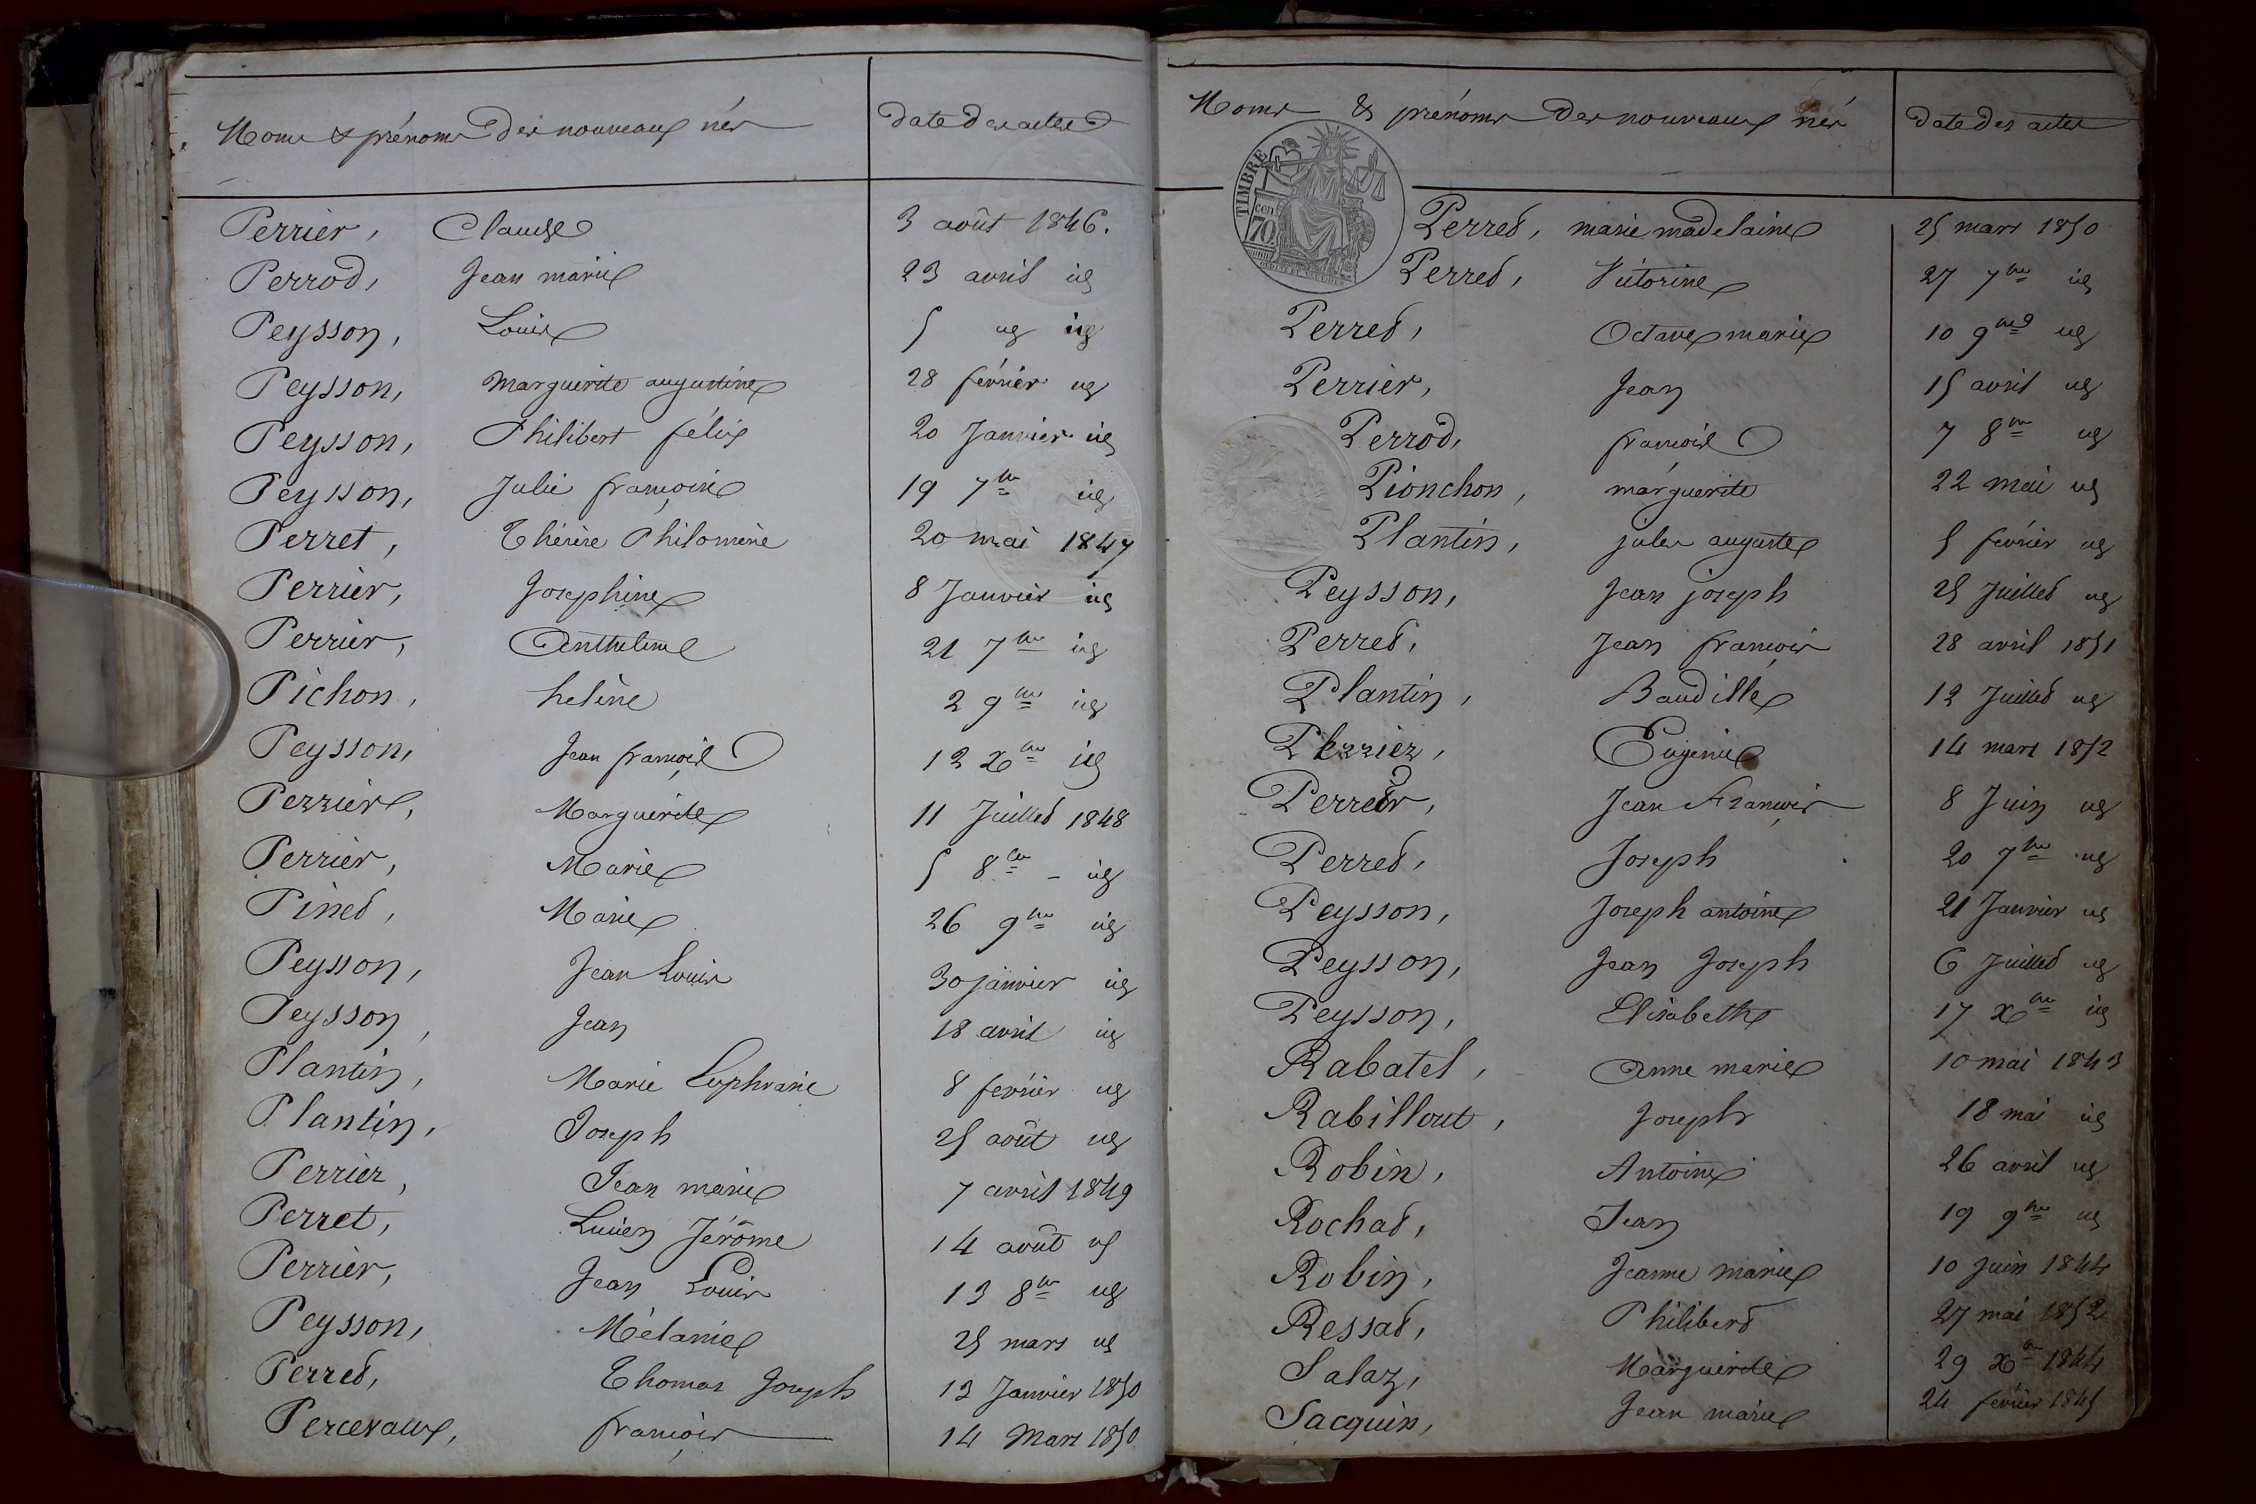 Noms & prénoms des nouveaux nés
date des actes
Perrier, Claude 3 août 1846.
Perrod, Jean marie 23 avril id
Peysson, Louis 5 id id
Peysson, Marguerite augustine 28 février id
Peysson, Philibert félix 20 Janvier id
Peysson, Julie françoise 19 7bre id
Perret, Thérèse Philomène 20 mai 1847
Perrier, Josephine 8 Janvier id
Perrier, Anthelme 21 7bre id
Pichon, helène 2 9bre id
Peysson, Jean françois 12 Xbre id
Perrier, Marguerite 11 Juillet 1848
Perrier, Marie 5 8bre - id
Pinet, Marie 26 9bre id
Peysson, Jean Louis 30 janvier id
Peysson, Jean 18 avril id
Plantin, Marie Euphrasie 8 février id
Plantin, Joseph 25 août id
Perrier, Jean marie 7 avril 1849
Perret, Lucien Jérôme 14 août id
Perrier, Jean Louis 13 8bre id
Peysson, Mélanie 25 mars id
Perret, Thomas Joseph 13 Janvier 1850
Percevaux, françois 14 Mars 1850
Noms & prénoms des nouveaux nés
date des actes
TIMBRE
70 cen
Perret, marie madelaine 25 mars 1850
Perret, Victorine 27 7bre id
Perret, Octave marie 10 9bre id
Perrier, Jean 15 avril id
Perrod, françois 7 8bre id
Pionchon, marguerite 22 mai id
Plantin, jules auguste 5 février id
Peysson, Jean joseph 25 Juillet id
Perret, Jean françois 28 avril 1851
Plantin, Baudille 12 Juillet id
Perrier, Eugenie 14 mars 1852
Perret, Jean François 8 Juin id
Perret, Joseph 20 7bre id
Peysson, Joseph antoine 21 Janvier id
Peysson, Jean Joseph 6 Juillet id
Peysson, Elisabeth 17 Xbre id
Rabatel, Anne marie 10 mai 1843
Rabillout, Joseph 18 mai id
Robin, Antoine 26 avril id
Rochat, Jean 19 9bre id
Robin, Jeanne marie 10 juin 1844
Ressat, Philibert 27 mai 1852
Salaz, Marguerite 29 Xbre 1844
Sacquin, Jean marie 24 février 1845